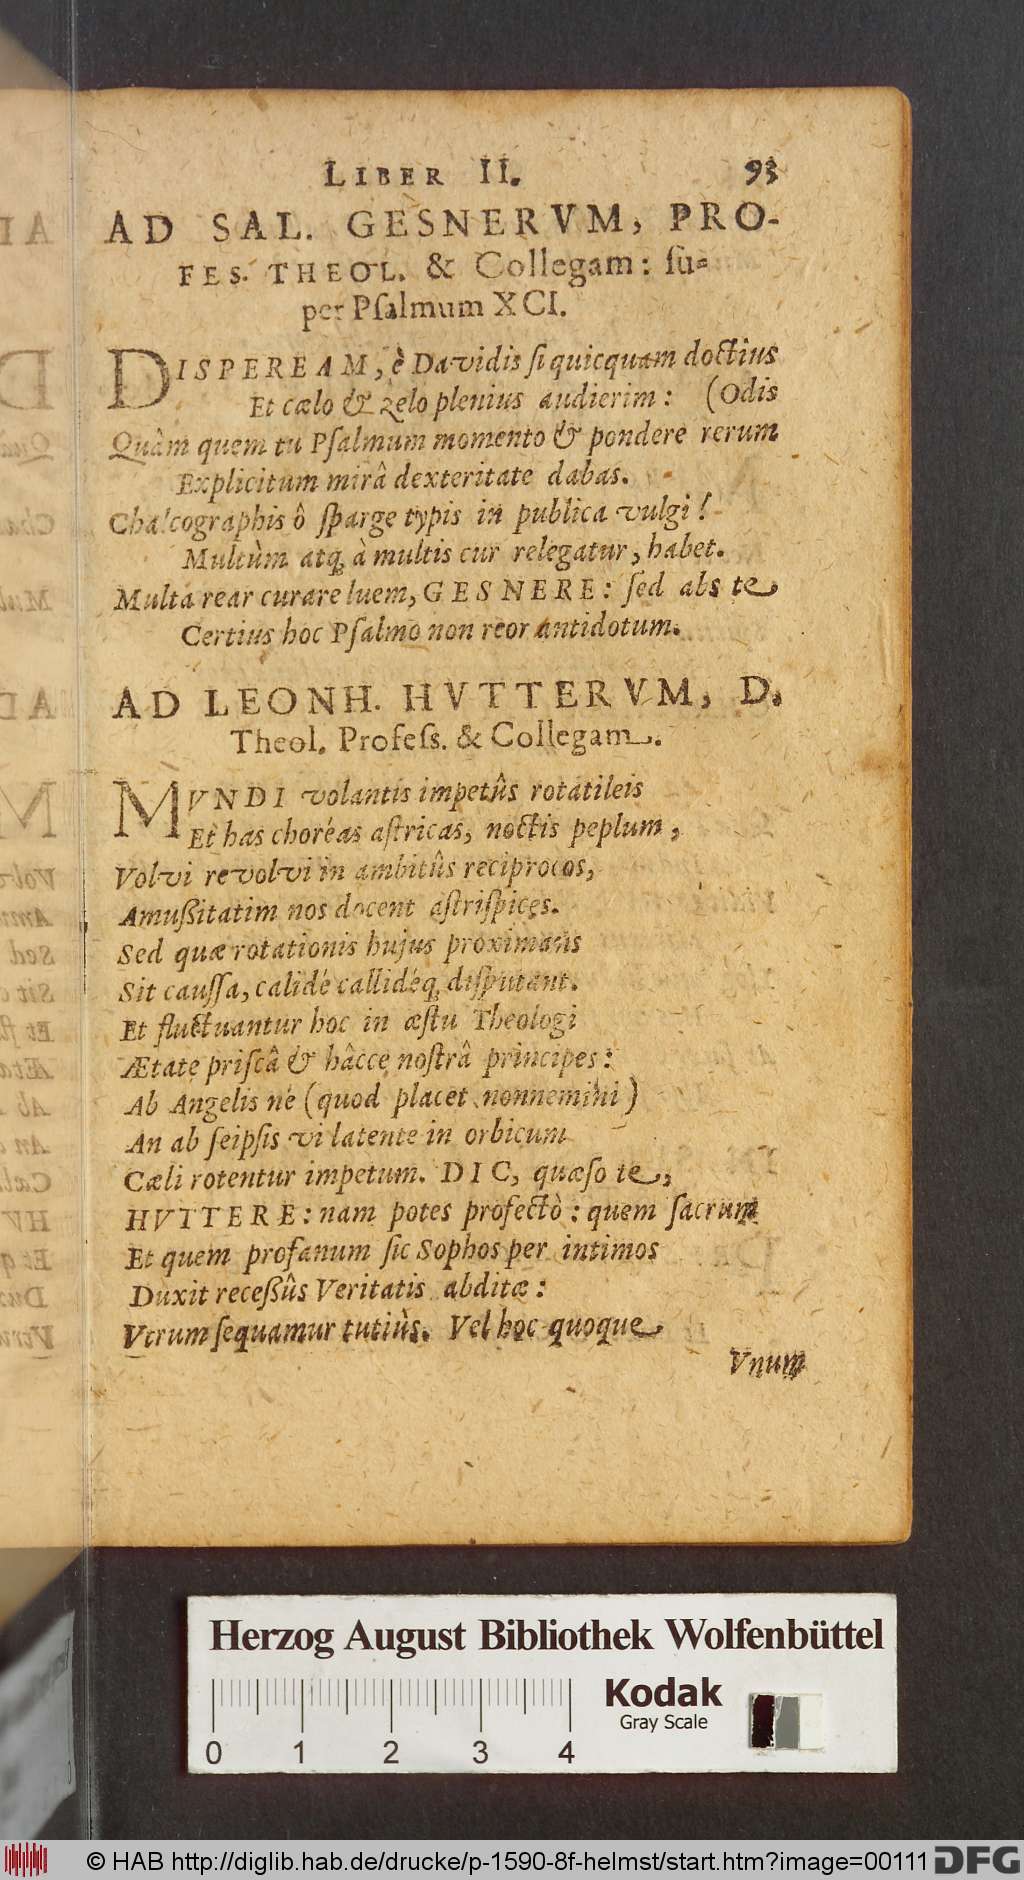 LIBER II. 93
AD SAL. GESNERVM, PRO-
FES. THEOL. & Collegam: ſu-
per Pſalmum XCI.
DISPEREAM, è Davidis ſi quicquam doctius
Et cælo & zelo plenius audierim: (Odis
Quàm quem tu Pſalmum momento & pondere rerum
Explicitum mirâ dexteritate dabas.
Chalcographis ô ſparge typis in publica vulgi!
Multùm atq; à multis cur relegatur, habet.
Multa rear curare luem, GESNERE: ſed abs te
Certius hoc Pſalmo non reor antidotum.
AD LEONH. HVTTERVM, D.
Theol. Profeſs. & Collegam.
MVNDI volantis impetûs rotatileis
Et has choréas aſtricas, noctis peplum,
Volvi revolvi in ambitûs reciprocos,
Amußitatim nos docent aſtriſpices.
Sed quæ rotationis hujus proximans
Sit cauſſa, calidé callidéq; diſputant.
Et fluctuantur hoc in æſtu Theologi
Ætate priſcâ & hâcce noſtrâ principes:
Ab Angelis né (quod placet nonnemini)
An ab ſeipſis vi latente in orbicum
Cæli rotentur impetum. DIC, quæſo te,
HVTTERE: nam potes profectò: quem ſacrum
Et quem profanum ſic Sophos per intimos
Duxit receßûs Veritatis abditæ:
Vtrum ſequamur tutiùs. Vel hoc quoque
Vnum
Herzog August Bibliothek Wolfenbüttel
Kodak
Gray Scale
0 1 2 3 4
© HAB http://diglib.hab.de/drucke/p-1590-8f-helmst/start.htm?image=00111
DFG